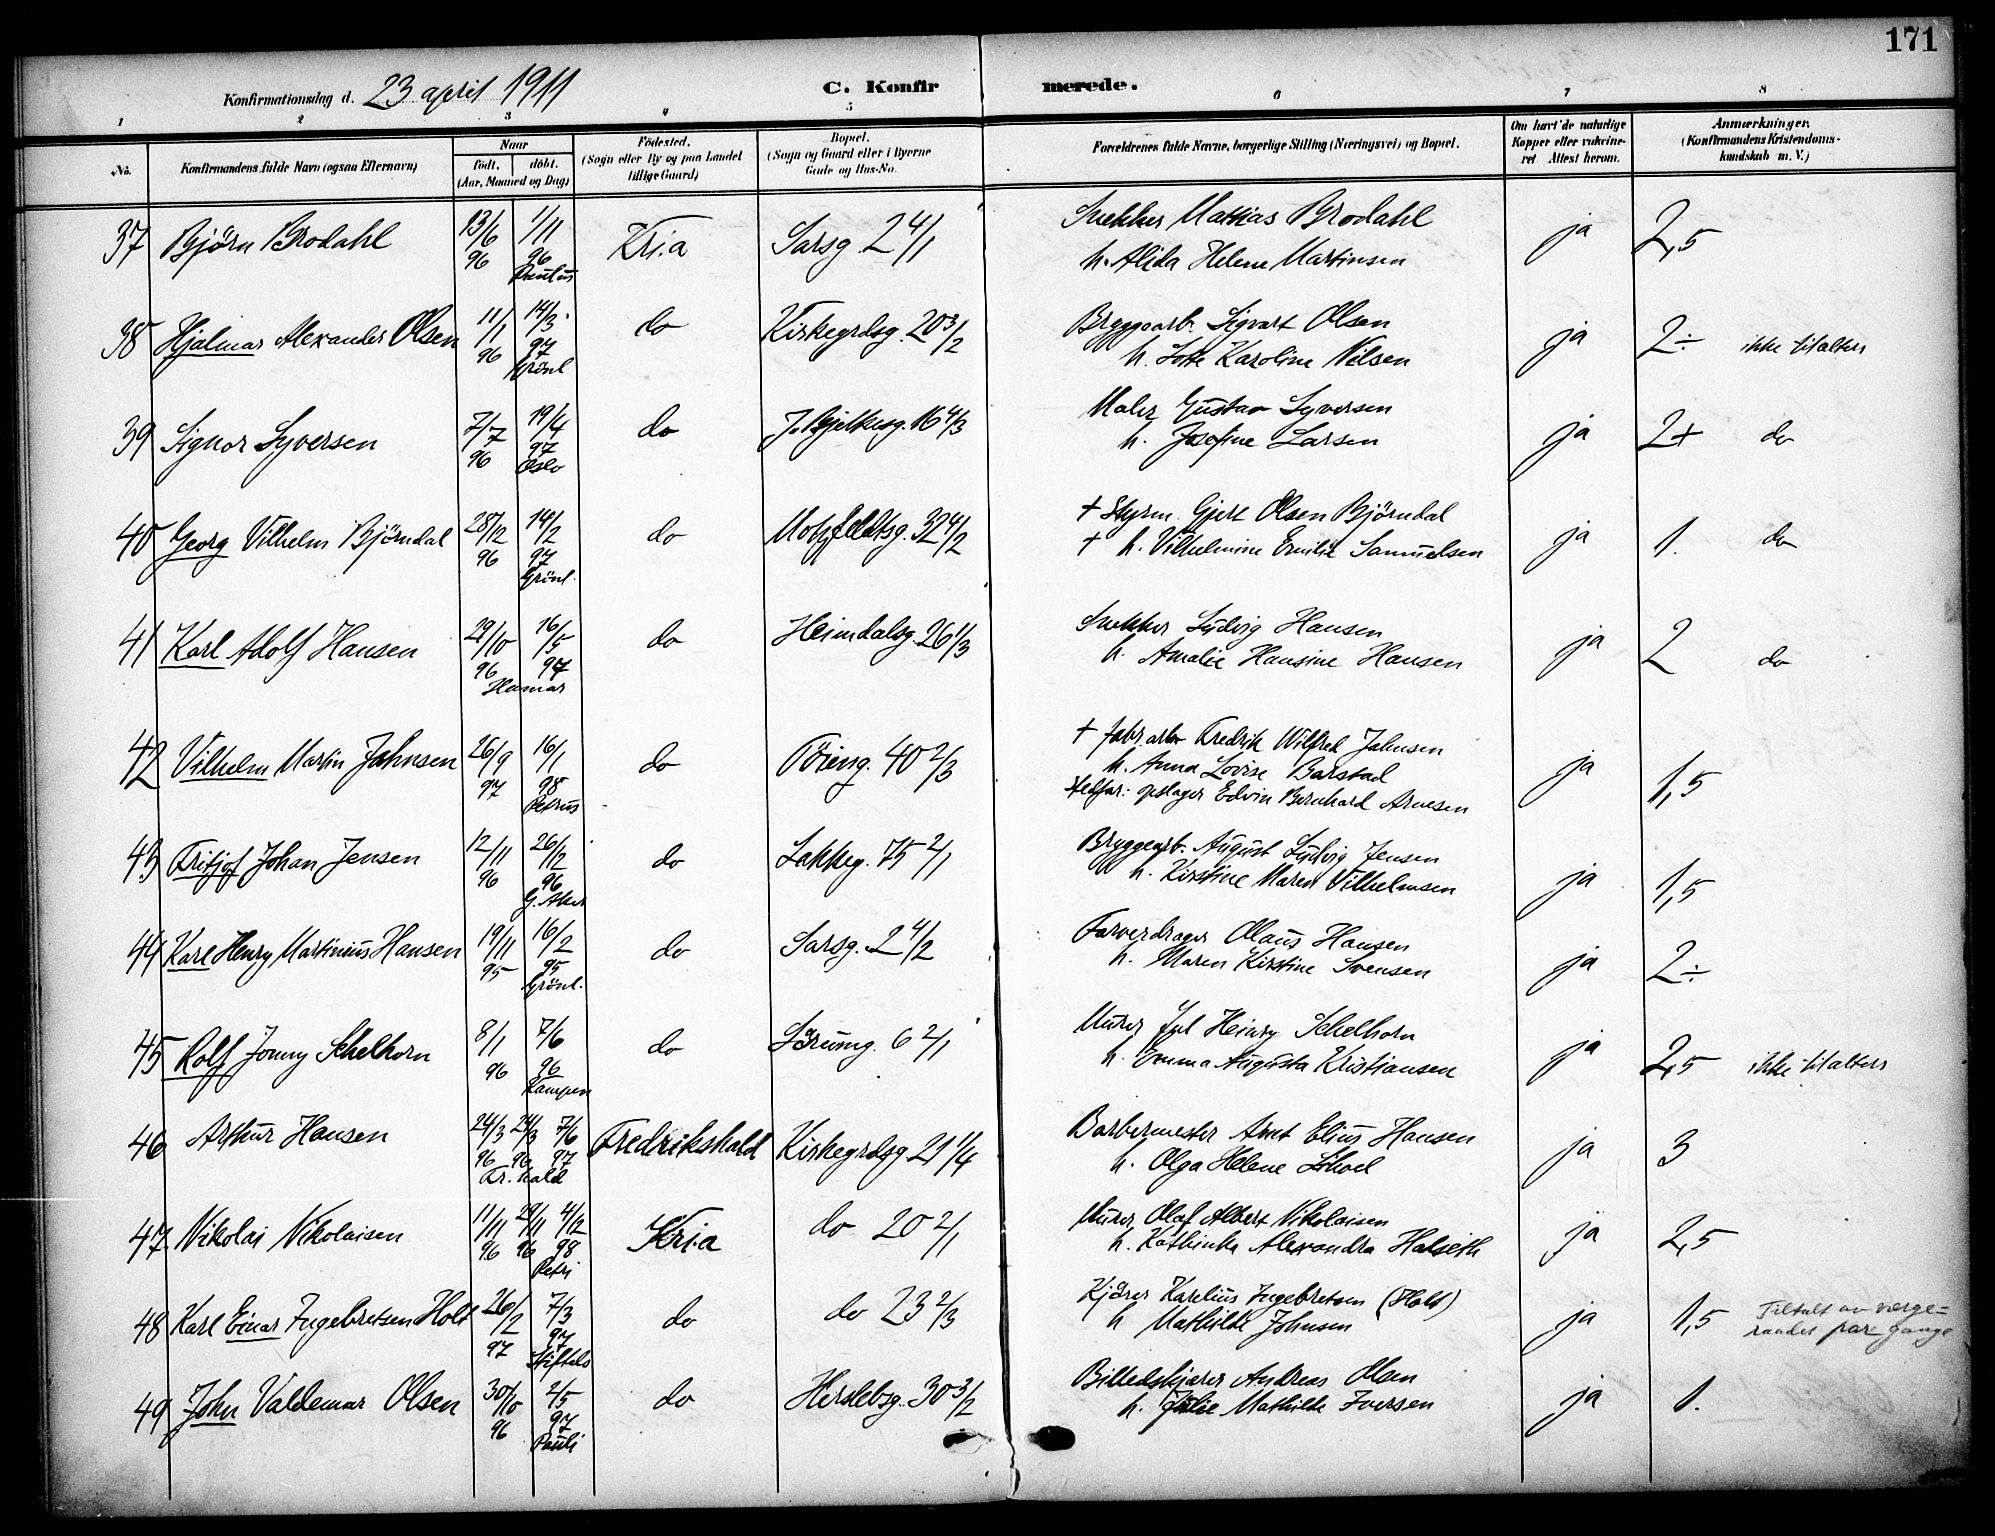 171
Konfirmationsdag d. 23 april 1911
C. Konfirmerede.
1 2 3 4 5 6 7 8
No.
Konfirmandens fulde Navn (ogsaa Efternavn)
Naar
født, døbt.
(Aar, Maaned og Dag)
Fødested.
(Sogn eller By og paa Landet
tillige Gaard)
Bopæl.
(Sogn og Gaard eller i Byerne
Gade og Hus-No.
Forældrenes fulde Navne, borgerlige Stilling (Næringsvei) og Bopæl.
Om havt de naturlige
Kopper eller vakcine-
ret Attest herom.
Anmærkninger.
(Konfirmandens Kristendoms-
kundskab m. V.)
37 Björn Brodahl 13/6 96 1/11 96 Paulus Kri.a Sarsg. 2 4/1
Snekker Mathias Brodahl
h. Alida Helene Martinsen
ja 2,5
38 Hjalmar Alexander Olsen 11/1 96 14/3 97 Grönl do Kirkegrdsg. 20 3/2
Bryggearb. Sigvart Olsen
h. Lotte Karoline Nilsen
ja 2÷ ikke tiltalters
39 Signor Syversen 7/7 96 19/4 97 Oslo do J. Bjelkesg. 16 4/3
Maler Gustav Syversen
h. Josefine Larsen
ja 2+ do
40 Georg Vilhelm Björndal 28/12 96 14/2 97 Grönl. do Motzfeldtsg. 32 4/2
† Styrm. Gjert Olsen Björndal
† h. Vilhelmine Emilie Samuelsen
ja 1. do
41 Karl Adolf Hansen 29/10 96 16/5 97 Hamar do Heimdalsg. 26 1/3
Snekker Ludvig Hansen
h. Amalie Hansine Hansen
ja 2 do
42 Vilhelm Martin Jahnsen 26/9 97 16/1 98 Petrus do Töieng. 40 2/3
† fabr.arb. Fredrik Wilfred Jahnsen
h. Anna Lovise Barstad
stedfar: Edvin Bernhard Arnesen
ja 1,5
43 Fritjof Johan Jensen 12/11 96 26/12 96 G. Aker do Lakkeg. 75 2/1
Bryggearb. August Ludvig Jensen
h. Kirstine Maren Vilhelmsen
ja 1,5
44 Karl Henry Martinius Hansen 19/11 95 16/2 95 Grönl. do Sarsg. 2 4/2
Farverdrager Olaus Hansen
h. Maren Kirstine Svensen
ja 2÷
45 Rolf Jonny Schelhorn 8/1 96 7/6 96 Kampen do Sörumg. 6 2/1
Murer Jul Heinry Schelhorn
h. Emma Augusta Kristiansen
ja 2,5 ikke tiltalters
46 Arthur Hansen 24/3 96 24/3 96 7/6 97 Fr.hald Fredrikshald Kirkegrdsg 21 1/4
Barbermester Arnt Elius Hansen
h. Olga Helene
ja 3
47 Nikolai Nikolaisen 11/11 96 29/11 96 4/12 98 Petri Kri.a do 20 2/1
Murer Olaf Albert Nikolaisen
h. Kathinka Alexandra Halseth
ja 2,5
48 Karl Einar Ingebretsen Holt 26/2 97 7/3 97 Stiftels do do 23 2/3
Kjörer Karelius Ingebretsen (Holt)
h Mathilde Johnsen
ja 1,5 Tiltalt av værge=
raadet par gange
49 John Valdemar Olsen 30/10 96 2/5 97 Pauli do Herslebsg. 30 3/2
Billedskjærer Andreas Olsen
h. Julie Mathilde Iversen
ja 1.